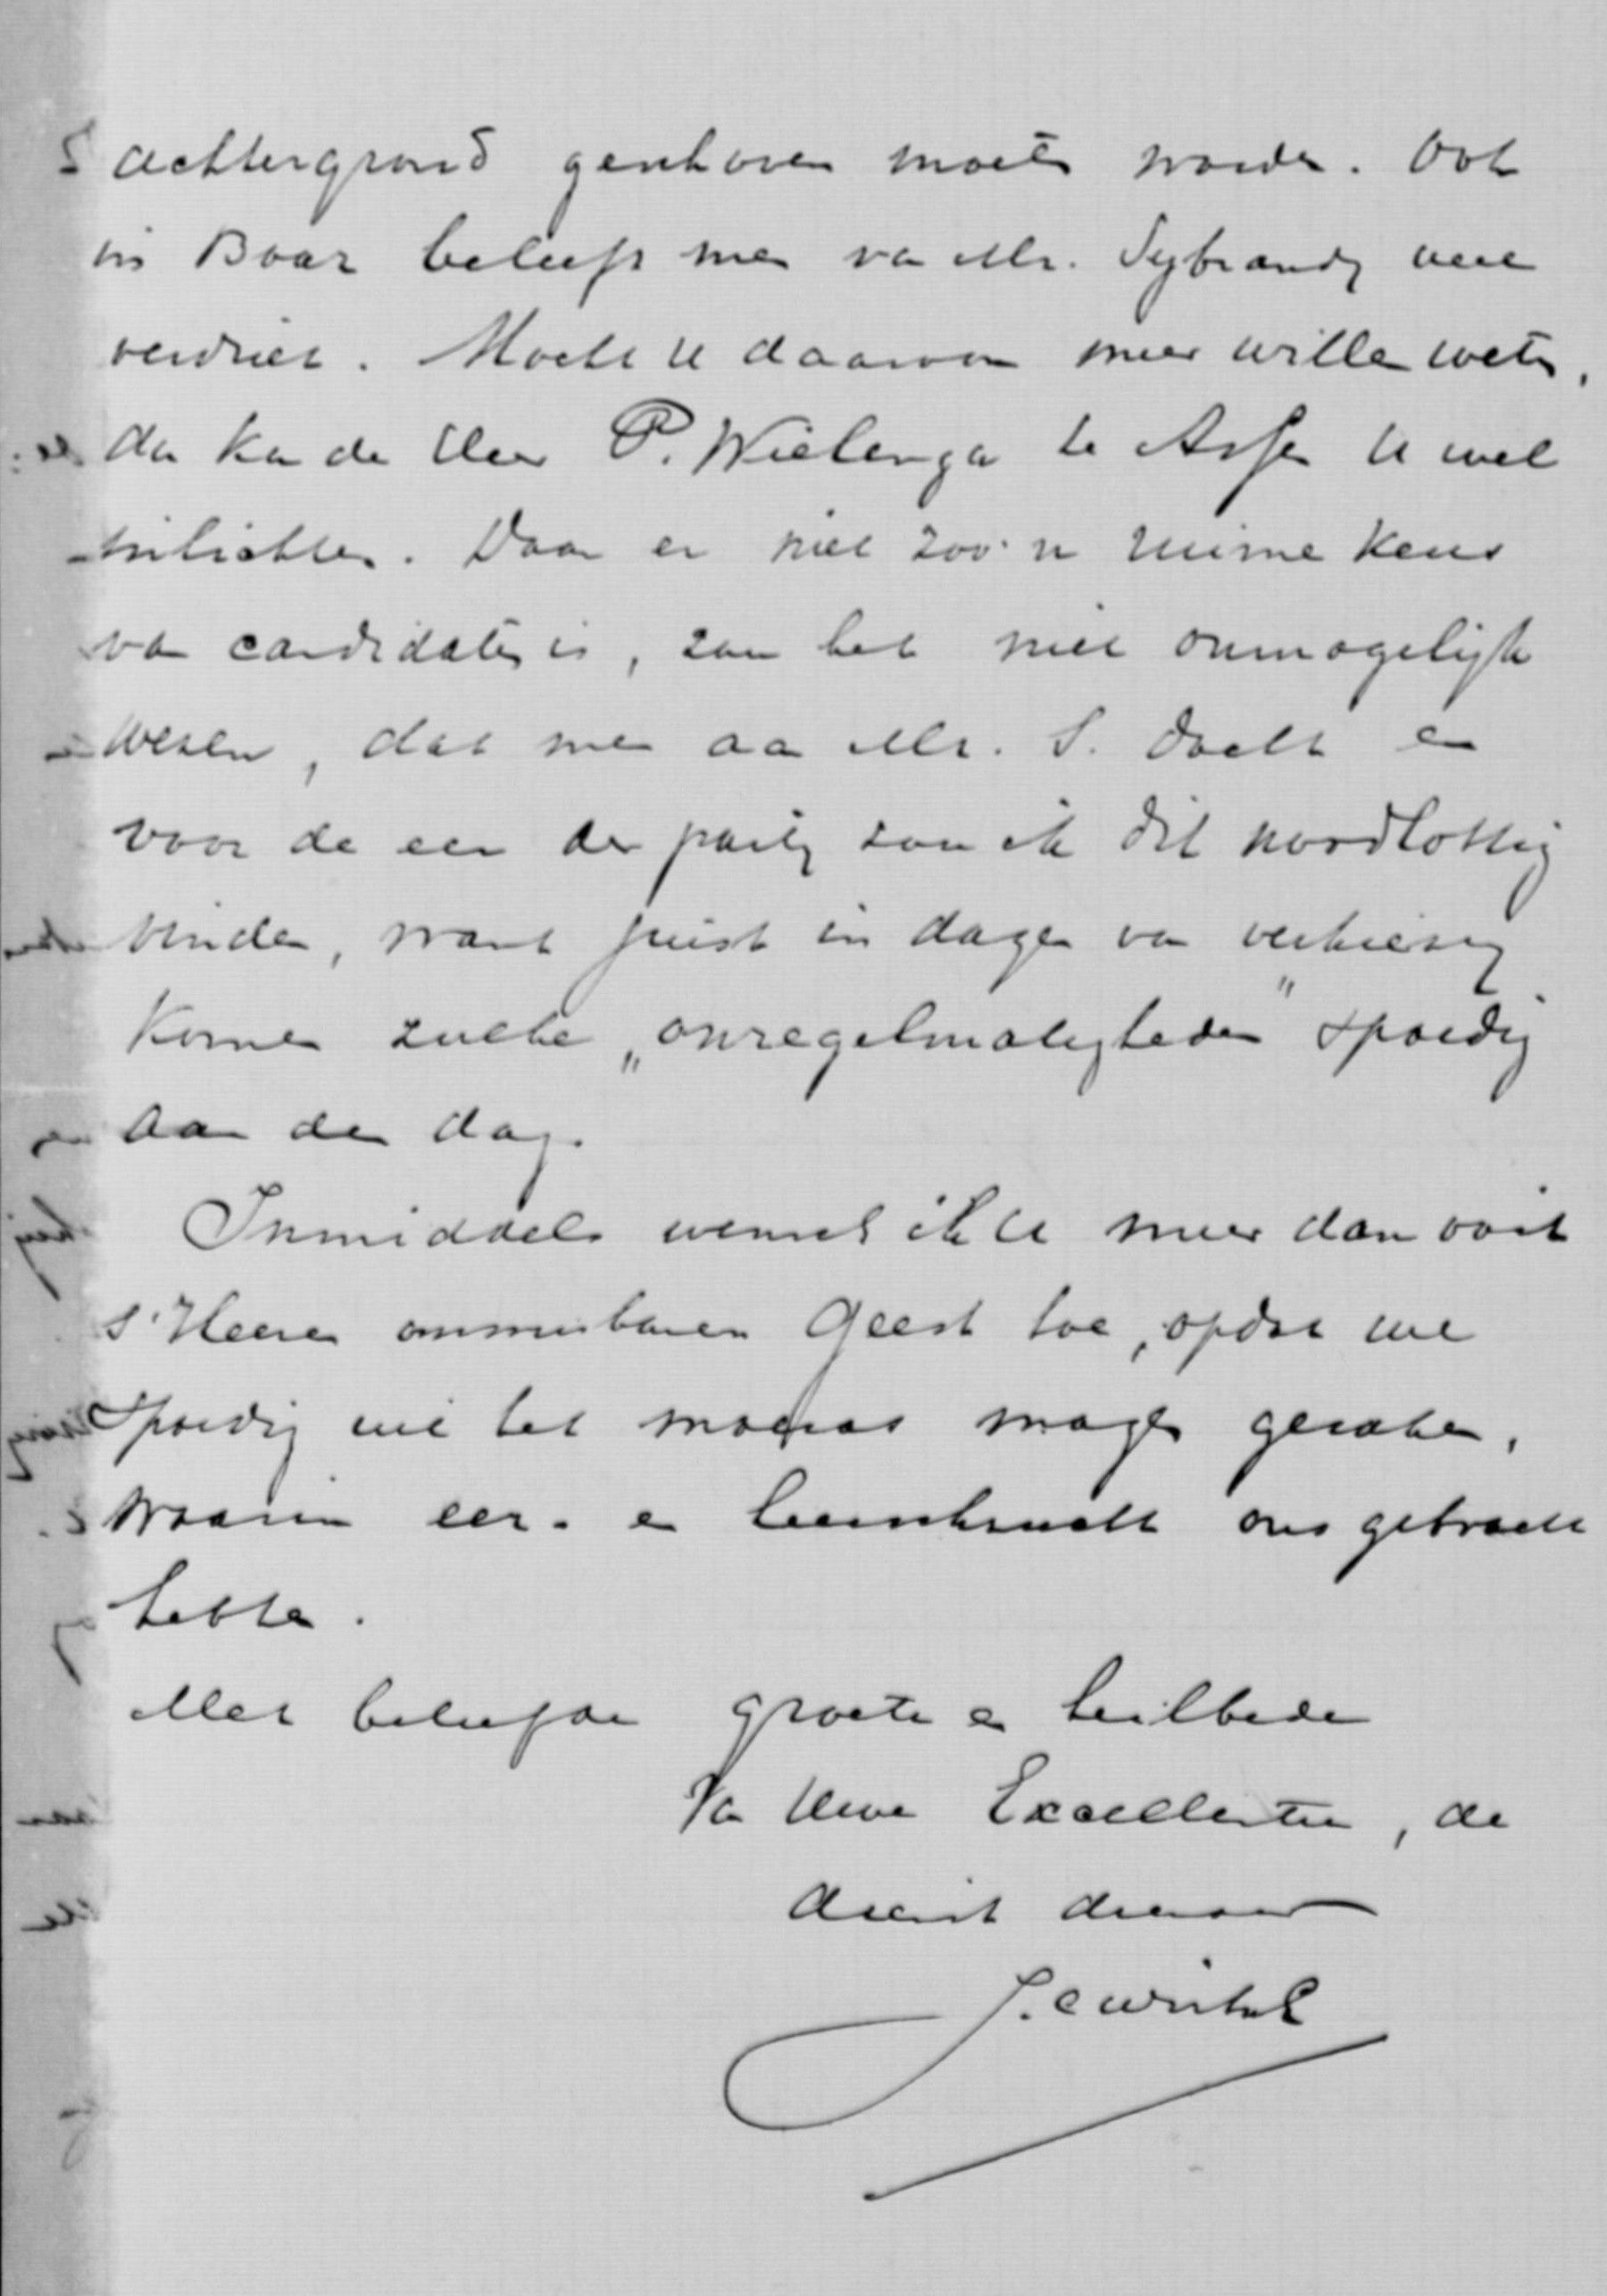 achtergrond geschoven moeten worden. Ook
in Baar beleeft men van Mr. Sybrandy veel
verdriet. Mocht U daarvan meer willen weten,
dan kan de Heer P. Wielenga te Assen U wel
inlichten. Daar er niet zoo'n ruime keus
van candidaten is, zou het niet onmogelijk
wezen, dat men aan Mr. S. dacht en
voor de eer der partij zou ik dit noodlottig
vinden, want juist in dagen van verkiezing
komen zulke „onregelmatigheden" spoedig
aan den dag.
Inmiddels wensch ik U meer dan ooit
s'Heeren onmisbaren Geest toe, opdat we
spoedig uit het moeras mogen geraken,
waarin eer- en heerschzucht ons gebracht
hebben.
Met beleefde groeten en heilbede
Van Uwe Excellentie, de
dienaar